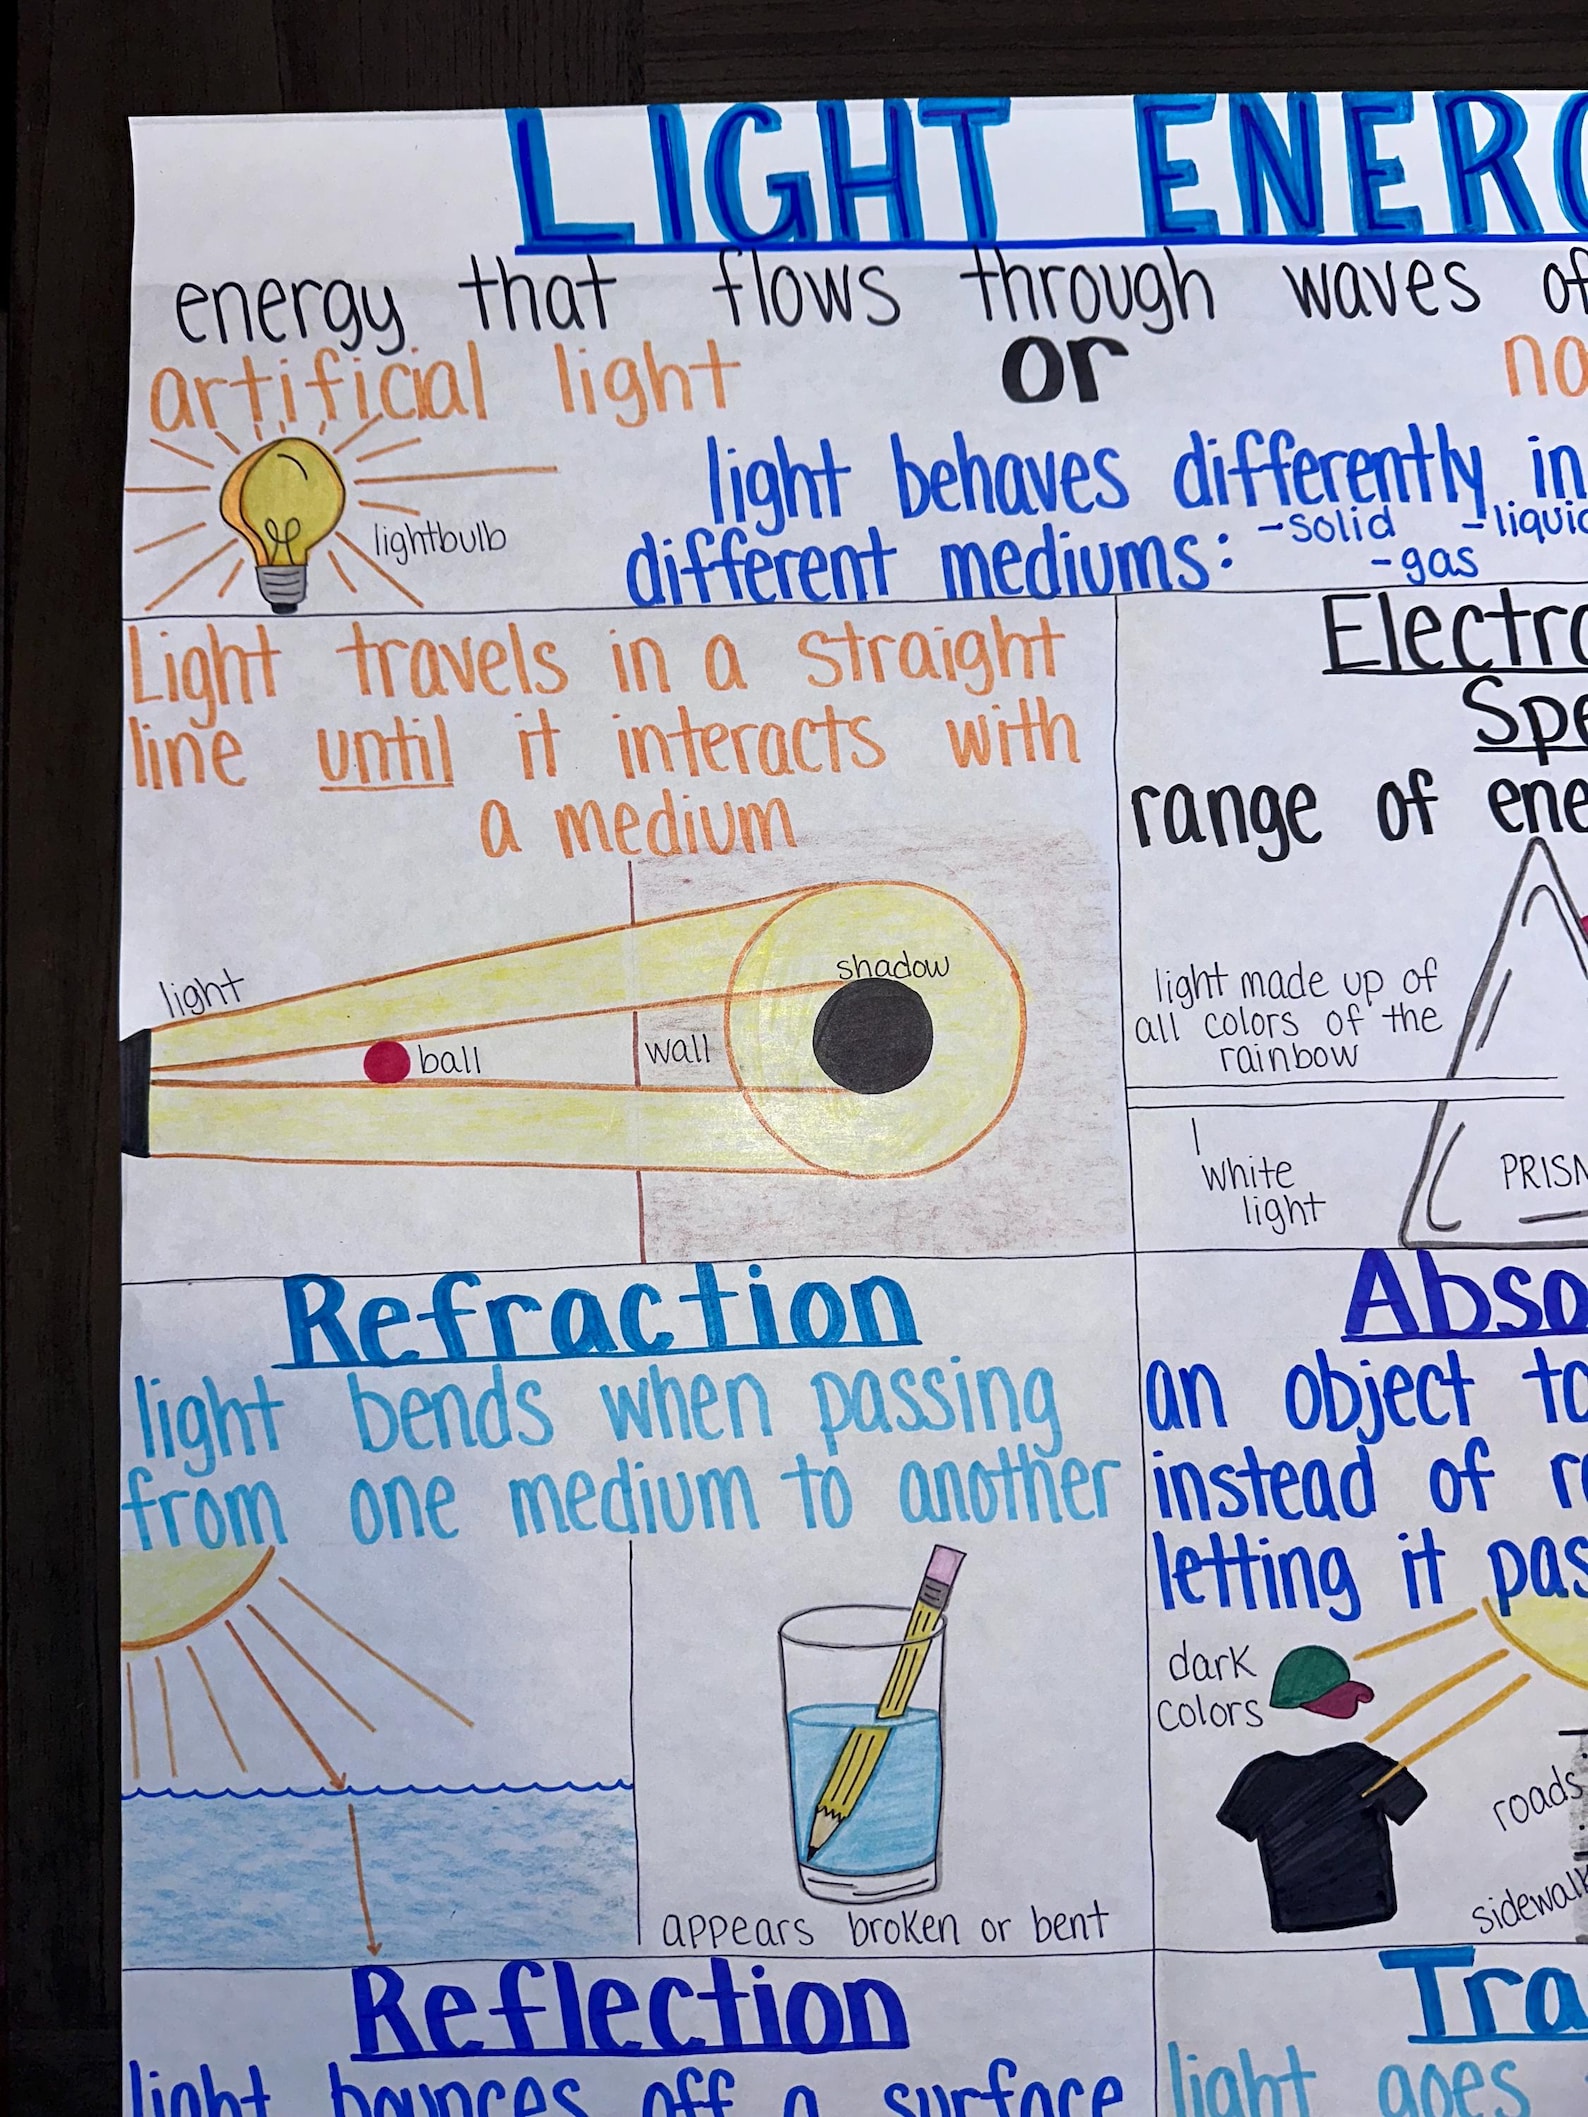 LIGHT
energy that flows through waves
artificial light or
lightbulb
light behaves differently in
different mediums: -solid
-gas
Light travels in a straight
line until it interacts with
a medium
light
ball
wall
shadow
range of
light made up of
all colors of the
rainbow
white
light
Refraction
light bends when passing
from one medium to another
appears broken or bent
an object
instead of
letting it
dark
colors
roads
Reflection
light bounces off a surface
light goes